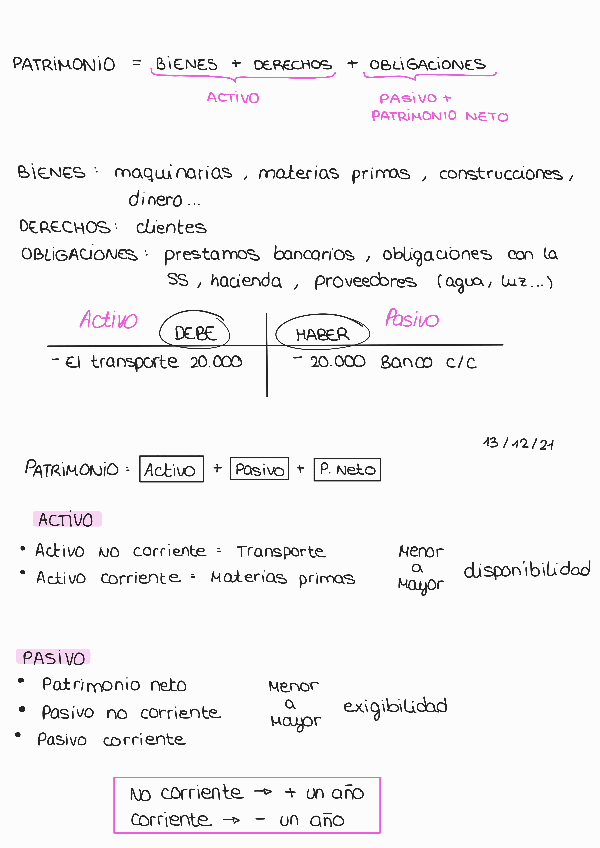 PATRIMONIO = BIENES + DERECHOS + OBLIGACIONES
ACTIVO PASIVO +
PATRIMONIO NETO
BIENES: maquinarias, materias primas, construcciones,
dinero...
DERECHOS: clientes
OBLIGACIONES: prestamos bancarios, obligaciones con la
SS, hacienda, proveedores (agua, luz...)
Activo DEBE HABER Pasivo
- El transporte 20.000 - 20.000 Banco c/c
13/12/21
PATRIMONIO: Activo + Pasivo + P. Neto
ACTIVO
• Activo no corriente = Transporte Menor
a
• Activo corriente = Materias primas Mayor disponibilidad
PASIVO
• Patrimonio neto Menor
• Pasivo no corriente a exigibilidad
• Pasivo corriente Mayor
No corriente → + un año
Corriente → - un año